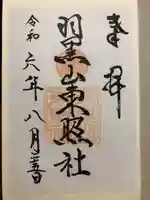 奉拝
羽黒山東照社
令和六年八月吉日